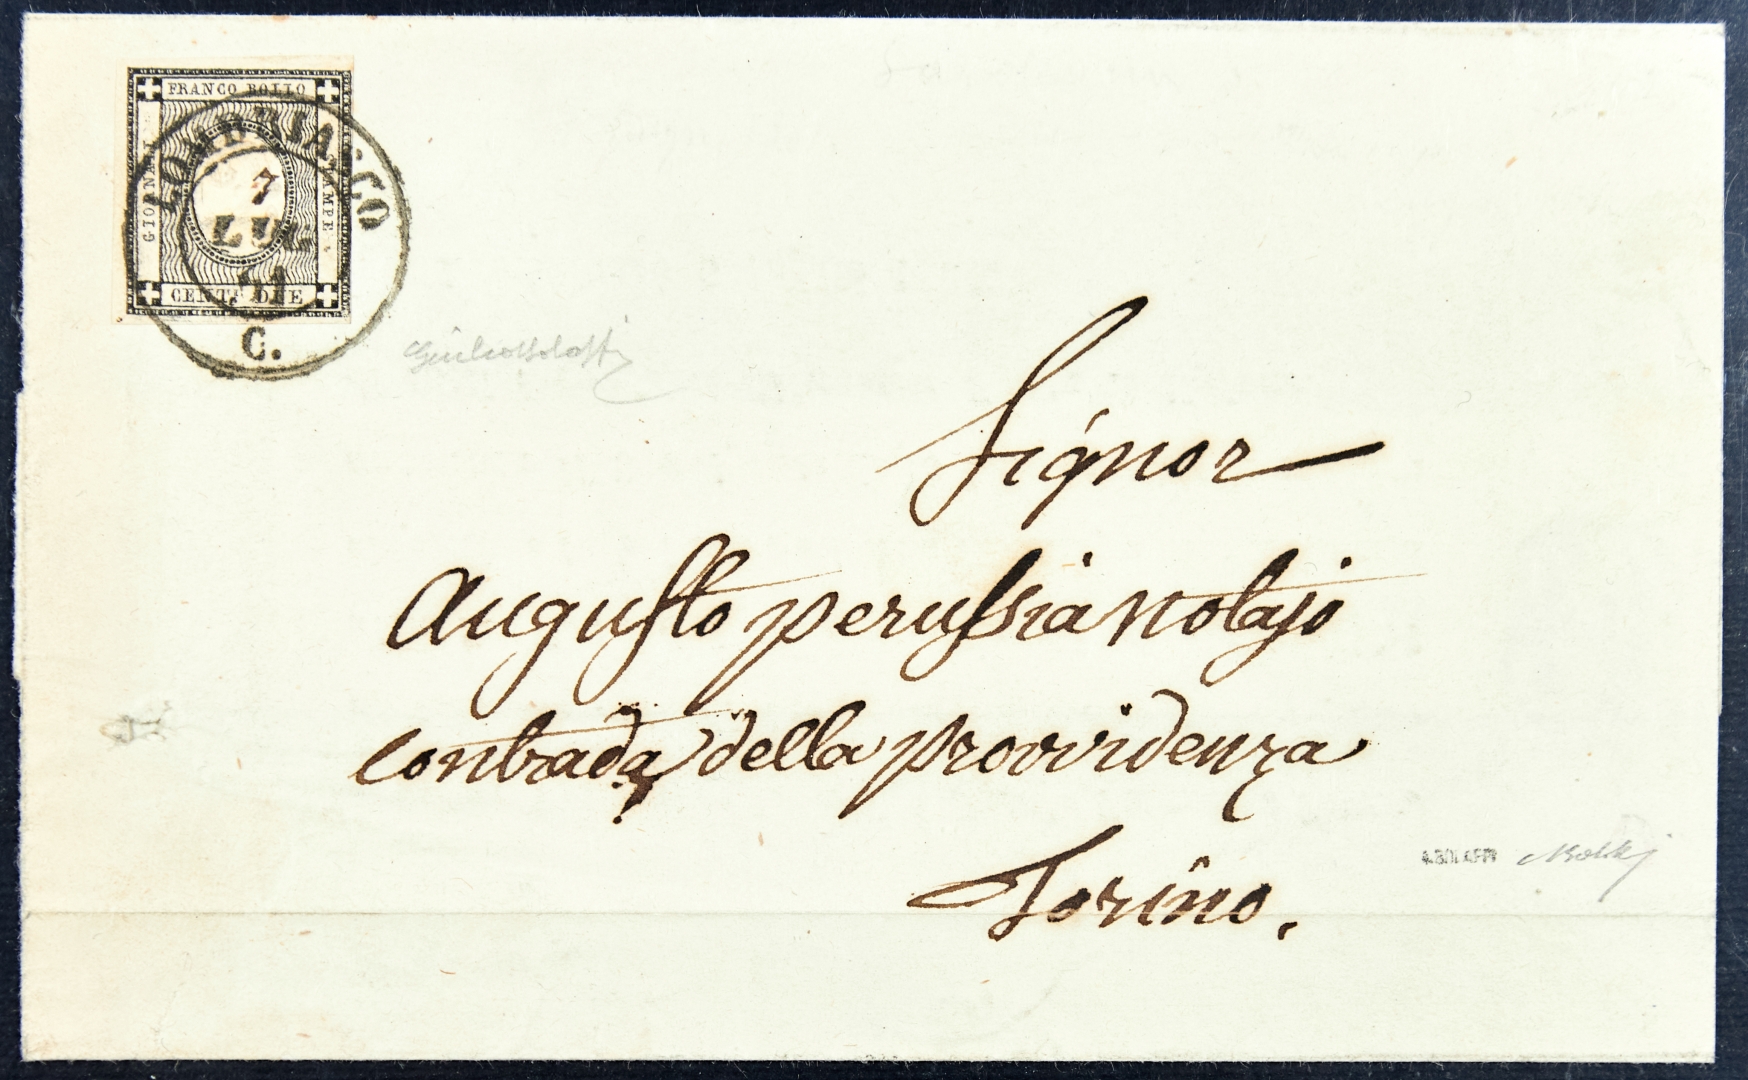 FRANCO BOLLO
GIORNALI
STAMPE
CENT. DUE
LOMBRIASCO
7
LUG
61
C.
Signor
Augusto perussia notajo
contrada della provvidenza
Torino.
A.BOLAFFI